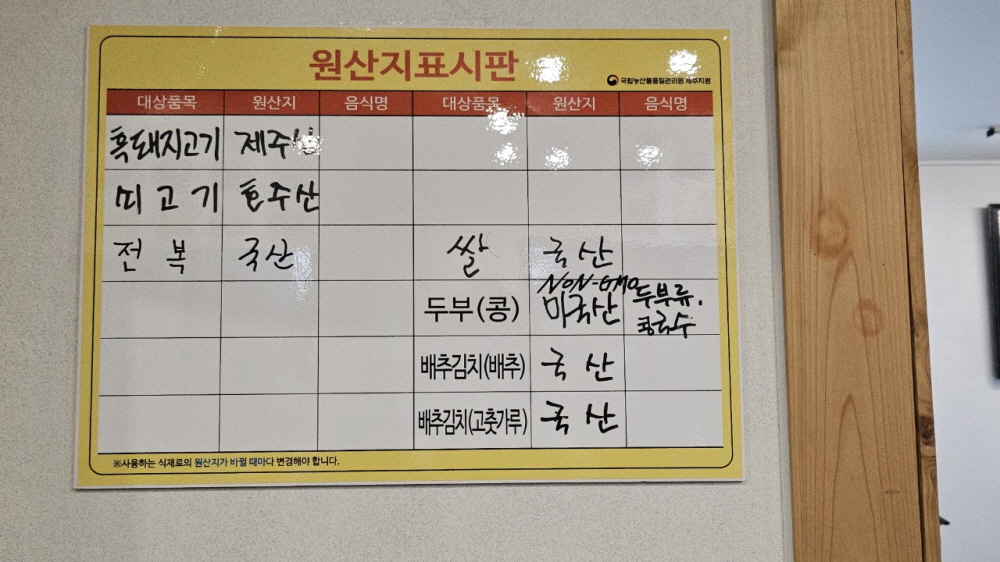 원산지표시판
국립농산물품질관리원 제주지원
대상품목 원산지 음식명 대상품목 원산지 음식명
흑돼지고기 제주산
호주산
전복 국산 쌀 국산
두부(콩) NON-GMO 미국산 두부류, 콩국수
배추김치(배추) 국산
배추김치(고춧가루) 국산
※사용하는 식재료의 원산지가 바뀔 때마다 변경해야 합니다.